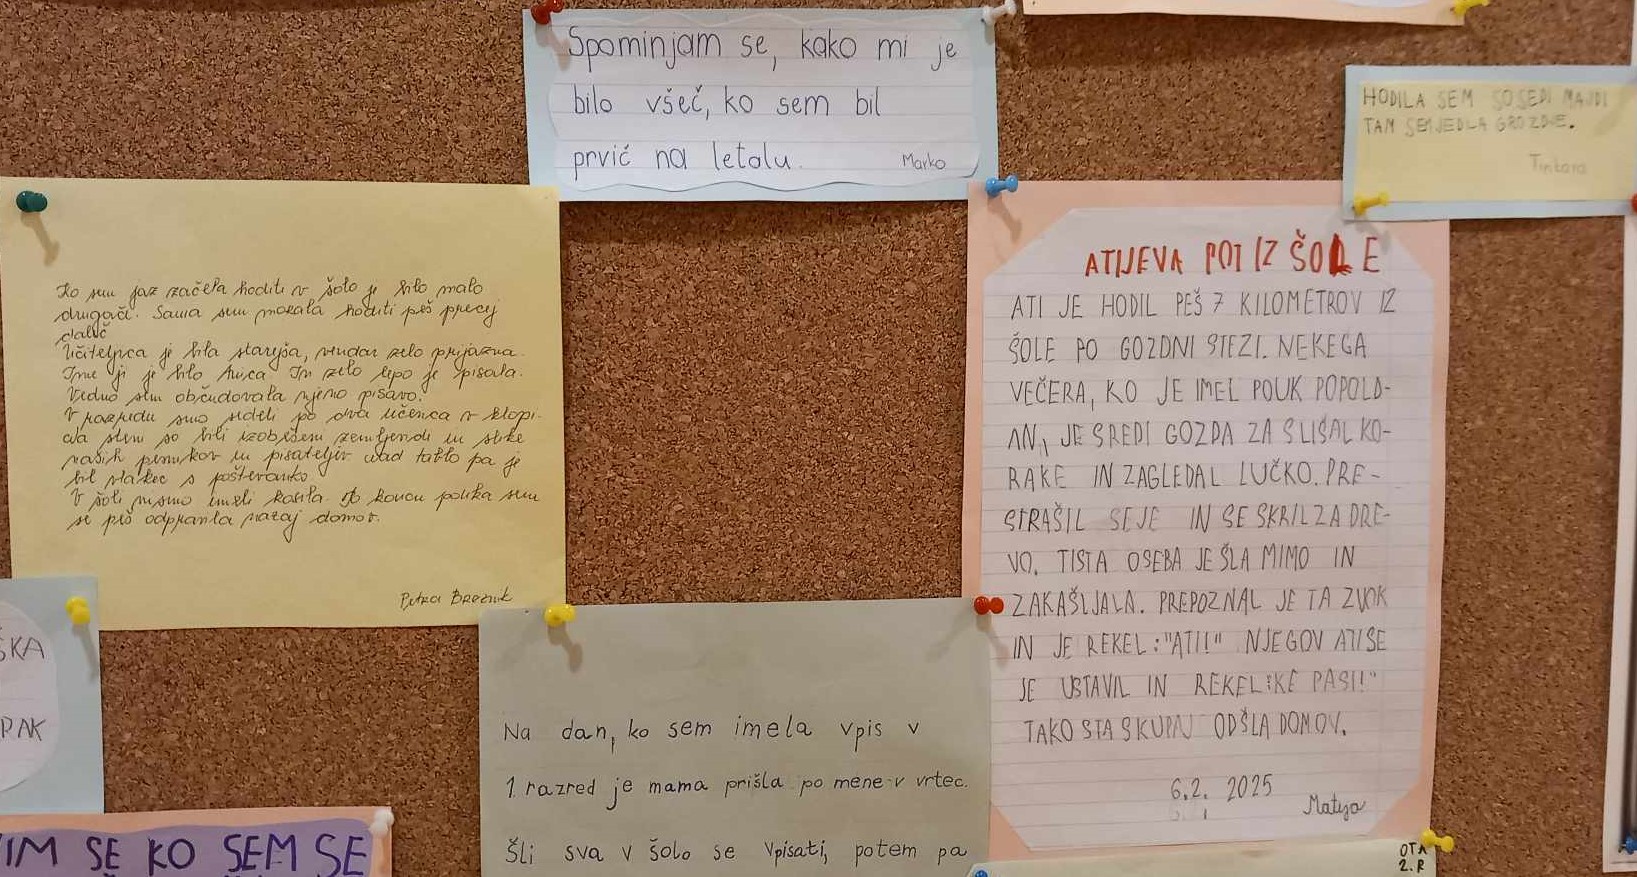 Spominjam se, kako mi je
bilo všeč, ko sem bil
prvič na letalu.
Marko
HODILA SEM SOSEDI MAJDI
TAM SEM JEDLA GROZDJE.
Tinkara
Ko sem jaz začela hoditi v šolo je bilo malo
drugače. Sama sem morala hoditi peš precej
daleč
Učiteljica je bila starejša, vendar zelo prijazna.
Ime ji je bilo In zelo lepo je pisala.
Vedno sem občudovala njeno pisavo.
V razredu smo sedeli po dva učenca v klopi.
so bili izobešeni zemljevidi in slike
naših pesnikov in pisateljev nad tablo pa je
bil vlakec s poštevanko.
V šoli nismo imeli kosila. Ob koncu pouka sem
se peš odpravila nazaj domov.
Petra
ATIJEVA POT IZ ŠOLE
ATI JE HODIL PEŠ 7 KILOMETROV IZ
ŠOLE PO GOZDNI STEZI. NEKEGA
VEČERA, KO JE IMEL POUK POPOLD-
AN, JE SREDI GOZDA ZA SLIŠAL KO-
RAKE IN ZAGLEDAL LUČKO. PRE-
STRAŠIL SE JE IN SE SKRIL ZA DRE-
VO. TISTA OSEBA JE ŠLA MIMO IN
ZAKAŠLJALA. PREPOZNAL JE TA ZVOK
IN JE REKEL: "ATI!" NJEGOV ATI SE
JE USTAVIL IN REKEL: PASI!"
TAKO STA SKUPAJ ODŠLA DOMOV.
6.2. 2025
Matija
ŠKA
PAK
Na dan, ko sem imela vpis v
1 razred je mama prišla po mene v vrtec.
Šli sva v šolo se vpisati, potem pa
VIM SE KO SEM SE
OTA
2. R